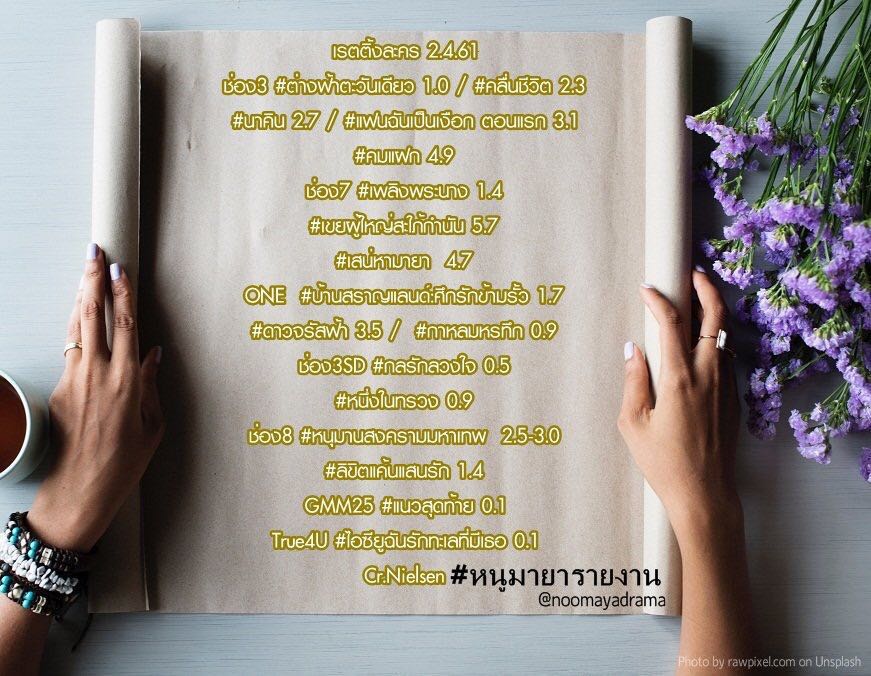 เรตติ้งละคร 2.4.61
ช่อง3 #ต่างฟ้าตะวันเดียว 1.0 / #คลื่นชีวิต 2.3
#นาคิน 2.7 / #แฟนฉันเป็นเงือก ตอนแรก 3.1
#คมแฝก 4.9
ช่อง7 #เพลิงพระนาง 1.4
#เขยผู้ใหญ่สะใภ้กำนัน 5.7
#เสน่หามายา 4.7
ONE #บ้านสราญแลนด์:ศึกรักข้ามรั้ว 1.7
#ดาวจรัสฟ้า 3.5 / #กาหลมหรทึก 0.9
ช่อง3SD #กลรักลวงใจ 0.5
#หนึ่งในทรวง 0.9
ช่อง8 #หนุมานสงครามมหาเทพ 2.5-3.0
#ลิขิตแค้นแสนรัก 1.4
GMM25 #แนวสุดท้าย 0.1
True4U #ไอซียูฉันรักทะเลที่มีเธอ 0.1
Cr.Nielsen #หนูมายารายงาน
@noomayadrama
Photo by rawpixel.com on Unsplash